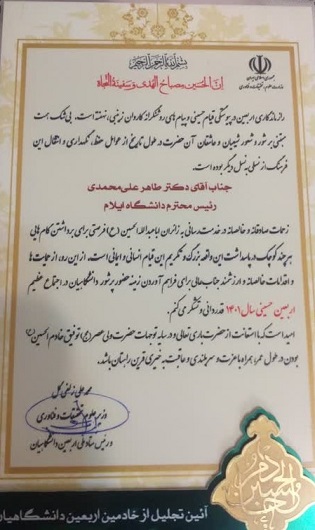 بسم الله الرحمن الرحیم
جمهوری اسلامی ایران
وزارت علوم، تحقیقات و فناوری
ان الحسین مصباح الهدی و سفینة النجاة
راز ماندگاری اربعین در پیوستگی قیام حسینی و پیام‌های روشنگرانه کاروان زینبی، نهفته است. بی‌شک همت
بهشتی پرشور و شعور شیعیان و عاشقان آن حضرت در طول تاریخ از عوامل حفظ، نگهداری و انتقال این
فرهنگ از نسلی به نسل دیگر بوده است.
جناب آقای دکتر طاهر علی‌محمدی
رئیس محترم دانشگاه ایلام
زحمات صادقانه و خالصانه در خدمت رسانی به زائران اباعبدالله الحسین (ع) فرصتی برای برداشتن گام‌هایی
هر چند کوچک در پاسداشت این واقعه بزرگ و تکریم این قیام انسانی و ایمانی است. از این رو، از زحمات
و اقدامات خالصانه و ارزشمند جناب‌عالی برای فراهم آوردن زمینه حضور پرشور دانشگاهیان در اجتماع عظیم
اربعین حسینی سال ۱۴۰۱ قدردانی و تشکر می‌کنم.
امید است که با استعانت از حضرت باری تعالی و در سایه توجهات حضرت ولی عصر (عج) توفیق خادم الحسین
بودن در طول عمر، همراه با عزت و سربلندی و عاقبت به خیری قرین راهتان باشد.
محمد علی زلفی گل
وزیر علوم، تحقیقات و فناوری
و رئیس ستاد ملی اربعین دانشگاهیان
خادم الحسین
آئین تجلیل از خادمین اربعین دانشگاهیان